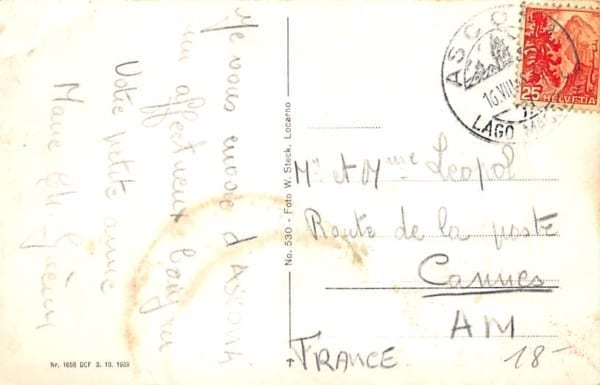 Je vous envoie d'Ascona
un affectueux bonjour
Votre petite amie
Marie Th.
Nr. 1658 DCF 3. 10. 1939
No. 530 - Foto W. Steck, Locarno
ASCONA
16.VIII
LAGO MAG
25
HELVETIA
Mr et Mme Léopol
Route de la poste
Cannes
AM
FRANCE
18-